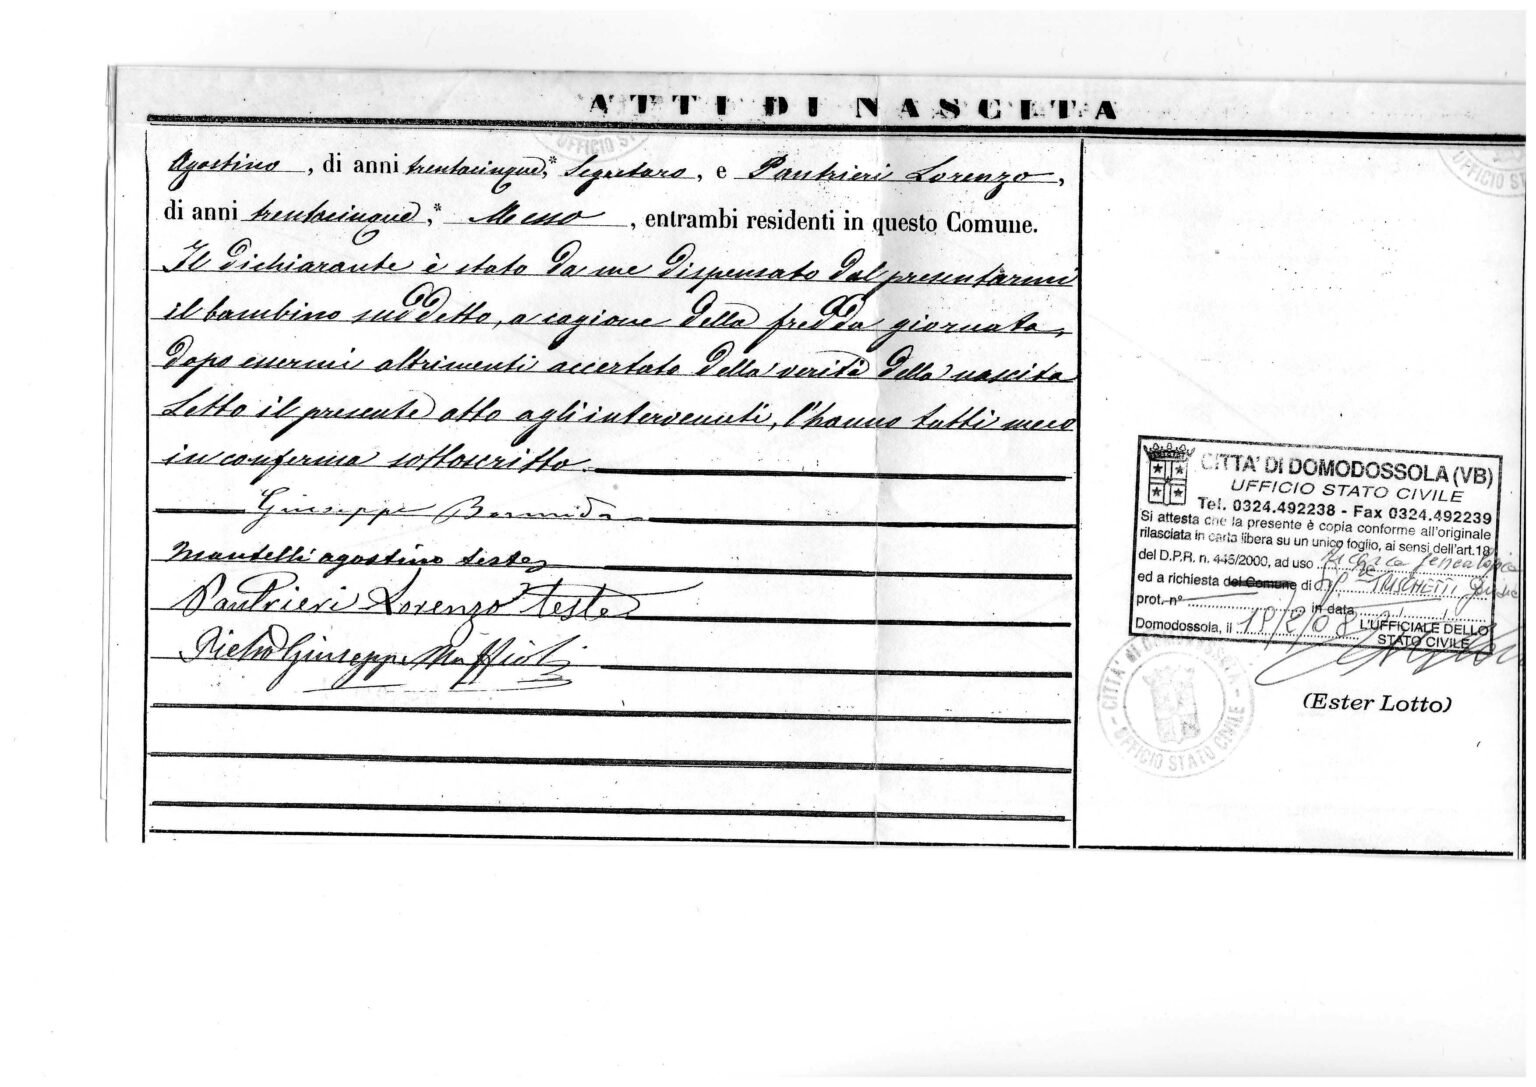 ATTI DI NASCITA
Agostino, di anni trentacinque,* Segretaro, e Pautrieri Lorenzo,
di anni trentacinque,* Messo, entrambi residenti in questo Comune.
Il dichiarante è stato da me dispensato dal presentarmi
il bambino suddetto, a cagione della fredda giornata,
dopo essermi altrimenti accertato della verità della nascita
Letto il presente atto agli intervenuti, l'hanno tutti meco
in conferma sottoscritto.
Giuseppe
Mantelli agostino teste
Pautrieri Lorenzo teste
Pietro Giuseppe Maffioli
UFFICIO
UFFICIO ST
CITTA' DI DOMODOSSOLA (VB)
UFFICIO STATO CIVILE
Tel. 0324.492238 - Fax 0324.492239
Si attesta che la presente è copia conforme all'originale
rilasciata in carta libera su un unico foglio, ai sensi dell'art.18
del D.P.R. n. 445/2000, ad uso Ricerca genealogica
ed a richiesta del Comune di
prot. n° in data / /
Domodossola, il 18/2/08 L'UFFICIALE DELLO
STATO CIVILE
(Ester Lotto)
CITTA' DI DOMODOSSOLA - UFFICIO STATO CIVILE -